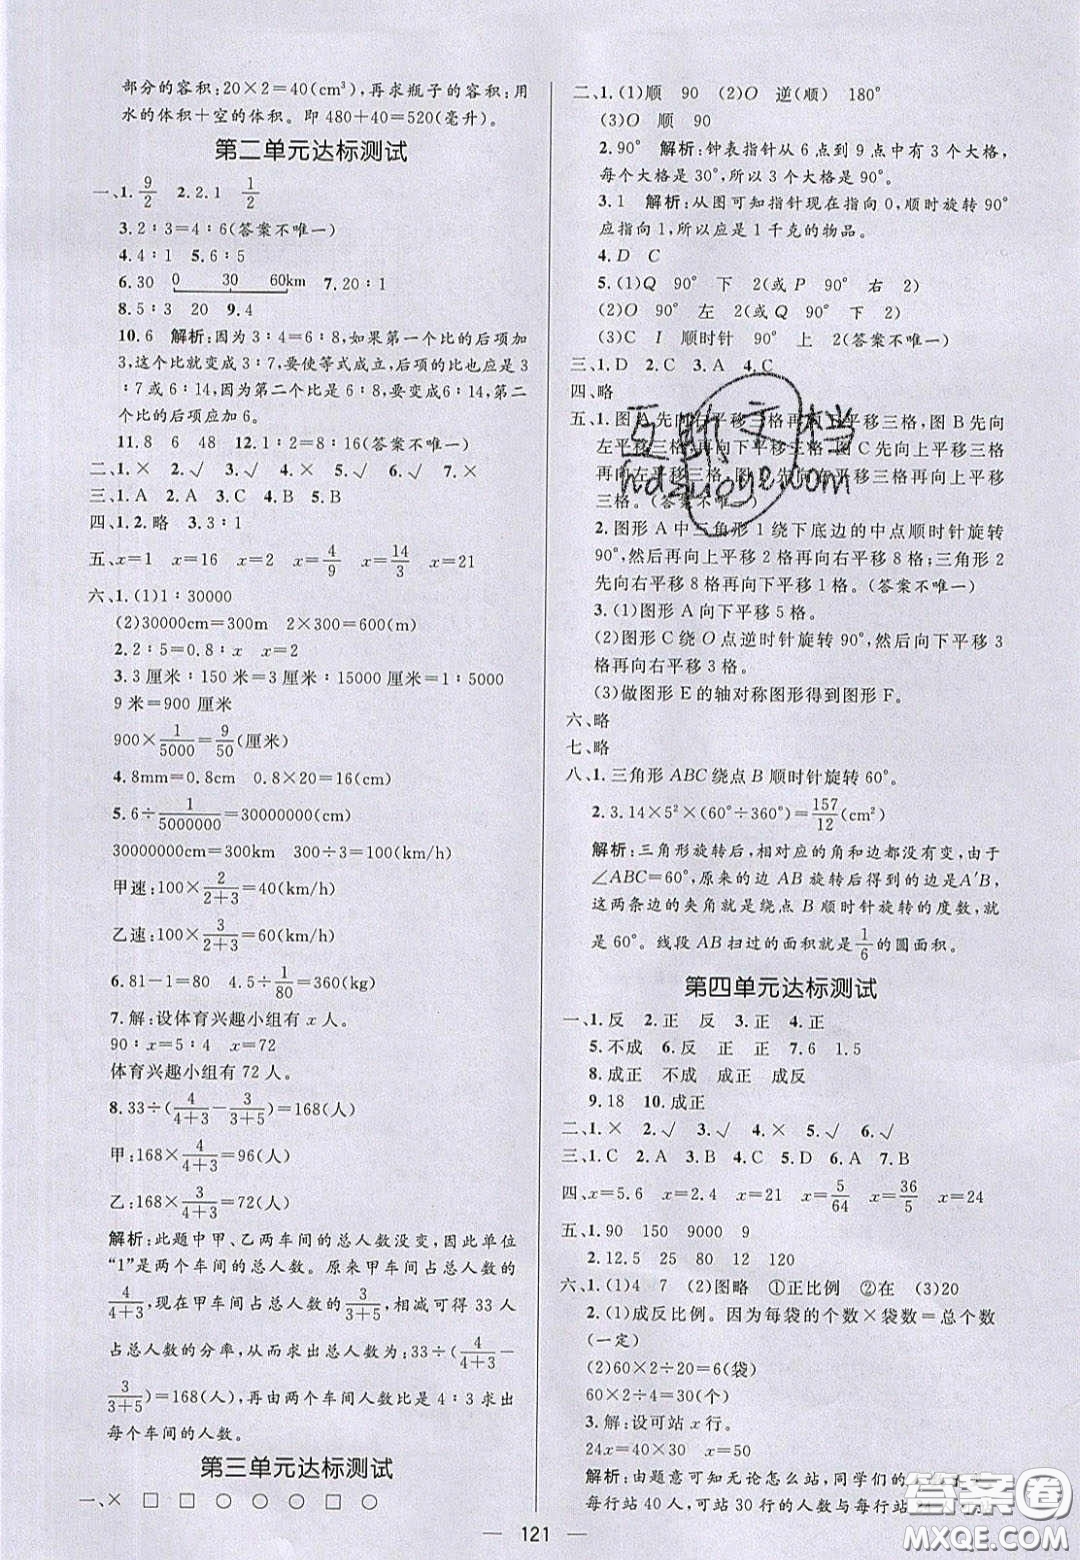 部分的容积:20×2=40(cm³),再求瓶子的容积:用
水的体积+空的体积。即 480+40=520(毫升)。
第二单元达标测试
一、1. 9/2 2. 2.1 1/2
3. 2∶3=4∶6(答案不唯一)
4. 4∶1 5. 6∶5
6. 30 0 30 60km 7. 20∶1
8. 5∶3 20 9. 4
10. 6 解析:因为 3∶4=6∶8,如果第一个比的后项加
3,这个比就变成 3∶7,要使等式成立,后项的比也应是 3
∶7 或 6∶14,因为第二个比是 6∶8,要变成 6∶14,第二
个比的后项应加 6。
11. 8 6 48 12. 1∶2=8∶16(答案不唯一)
二、1. × 2. √ 3. √ 4. √ 5. × 6. √ 7. ×
三、1. A 2. A 3. C 4. B 5. B
四、1. 2. 略 3. 3∶1
五、x=1 x=16 x=2 x=4/9 x=14/3 x=21
六、1. (1)1∶30000
(2)30000cm=300m 2×300=600(m)
2. 2∶5=0.8∶x x=2
3. 3 厘米∶150 米=3 厘米∶15000 厘米=1∶5000
9 米=900 厘米
900×1/5000=9/50(厘米)
4. 8mm=0.8cm 0.8×20=16(cm)
5. 6÷1/5000000=30000000(cm)
30000000cm=300km 300÷3=100(km/h)
甲速:100×2/(2+3)=40(km/h)
乙速:100×3/(2+3)=60(km/h)
6. 81-1=80 4.5÷1/80=360(kg)
7. 解:设体育兴趣小组有 x 人。
90∶x=5∶4 x=72
体育兴趣小组有 72 人。
8. 33÷(4/(4+3)-3/(3+5))=168(人)
甲:168×4/(4+3)=96(人)
乙:168×3/(4+3)=72(人)
解析:此题中甲、乙两车间的总人数没变,因此单位
“1”是两个车间的总人数。原来甲车间占总人数的
4/(4+3),现在甲车间占总人数的3/(3+5),相减可得 33 人
占总人数的分率,从而求出总人数为:33÷(4/(4+3)-
3/(3+5))=168(人),再由两个车间人数比是 4∶3 求出
每个车间的人数。
第三单元达标测试
一、× □ □ ○ ○ ○ □ ○
二、1. (1)顺 90 (2)O 逆(顺) 180°
(3)O 顺 90
2. 90° 解析:钟表指针从 6 点到 9 点中有 3 个大格,
每个大格是 30°,所以 3 个大格是 90°。
3. 1 解析:从图可知指针现在指向 0,顺时旋转 90°
应指向 1,所以应是 1 千克的物品。
4. D C
5. (1)Q 90° 下 2(或 P 90° 右 2)
(2)O 90° 左 2(或 Q 90° 下 2)
(3)C I 顺时针 90° 上 2(答案不唯一)
三、1. D 2. C 3. A 4. C
四、略
五、1. 图 A 先向右平移三格再向下平移三格,图 B 先向
左平移三格再向下平移三格 图 C 先向右平移三格
再向上平移三格 图 D 先向左平移三格再向上平移
三格。(答案不唯一)
2. 图形 A 中三角形 1 绕下底边的中点顺时针旋转
90°,然后再向上平移 2 格再向右平移 8 格;三角形 2
先向右平移 8 格再向下平移 1 格。(答案不唯一)
3. (1)图形 A 向下平移 5 格。
(2)图形 C 绕 O 点逆时针旋转 90°,然后向下平移 3
格再向右平移 3 格。
(3)做图形 E 的轴对称图形得到图形 F。
六、略
七、略
八、1. 三角形 ABC 绕点 B 顺时针旋转 60°。
2. 3.14×5²×(60°÷360°)=157/12(cm²)
解析:三角形旋转后,相对应的角和边都没有变,由于
∠ABC=60°,原来的边 AB 旋转后得到的边是A′B,
这两条边的夹角就是绕点 B 顺时针旋转的度数,就
是 60°。线段 AB 扫过的面积就是1/6的圆面积。
第四单元达标测试
一、1. 反 2. 正 反 3. 正 4. 正
5. 不成 6. 反 正 正 7. 6 1.5
8. 成正 不成 成正 成反
9. 18 10. 成正
二、1. × 2. √ 3. √ 4. × 5. √ 6. √
三、1. C 2. A 3. B 4. C 5. A 6. A 7. B
四、x=5.6 x=2.4 x=21 x=5/64 x=36/5 x=24
五、1. 90 150 9000 9
2. 12.5 25 80 12 120
六、1. (1)4 7 (2)图略 ①正比例 ②在 (3)20
2. (1)成反比例。因为每袋的个数×袋数=总个数
(一定)
(2)60×2÷20=6(袋)
60×2÷4=30(个)
3. 解:设可站 x 行。
24x=40×30 x=50
解析:由题意可知无论怎么站,同学们的
每行站 40 人,可站 30 行的人数与每行站
121
互助文档
hdzuoye.com
答案圈
MXQE.COM